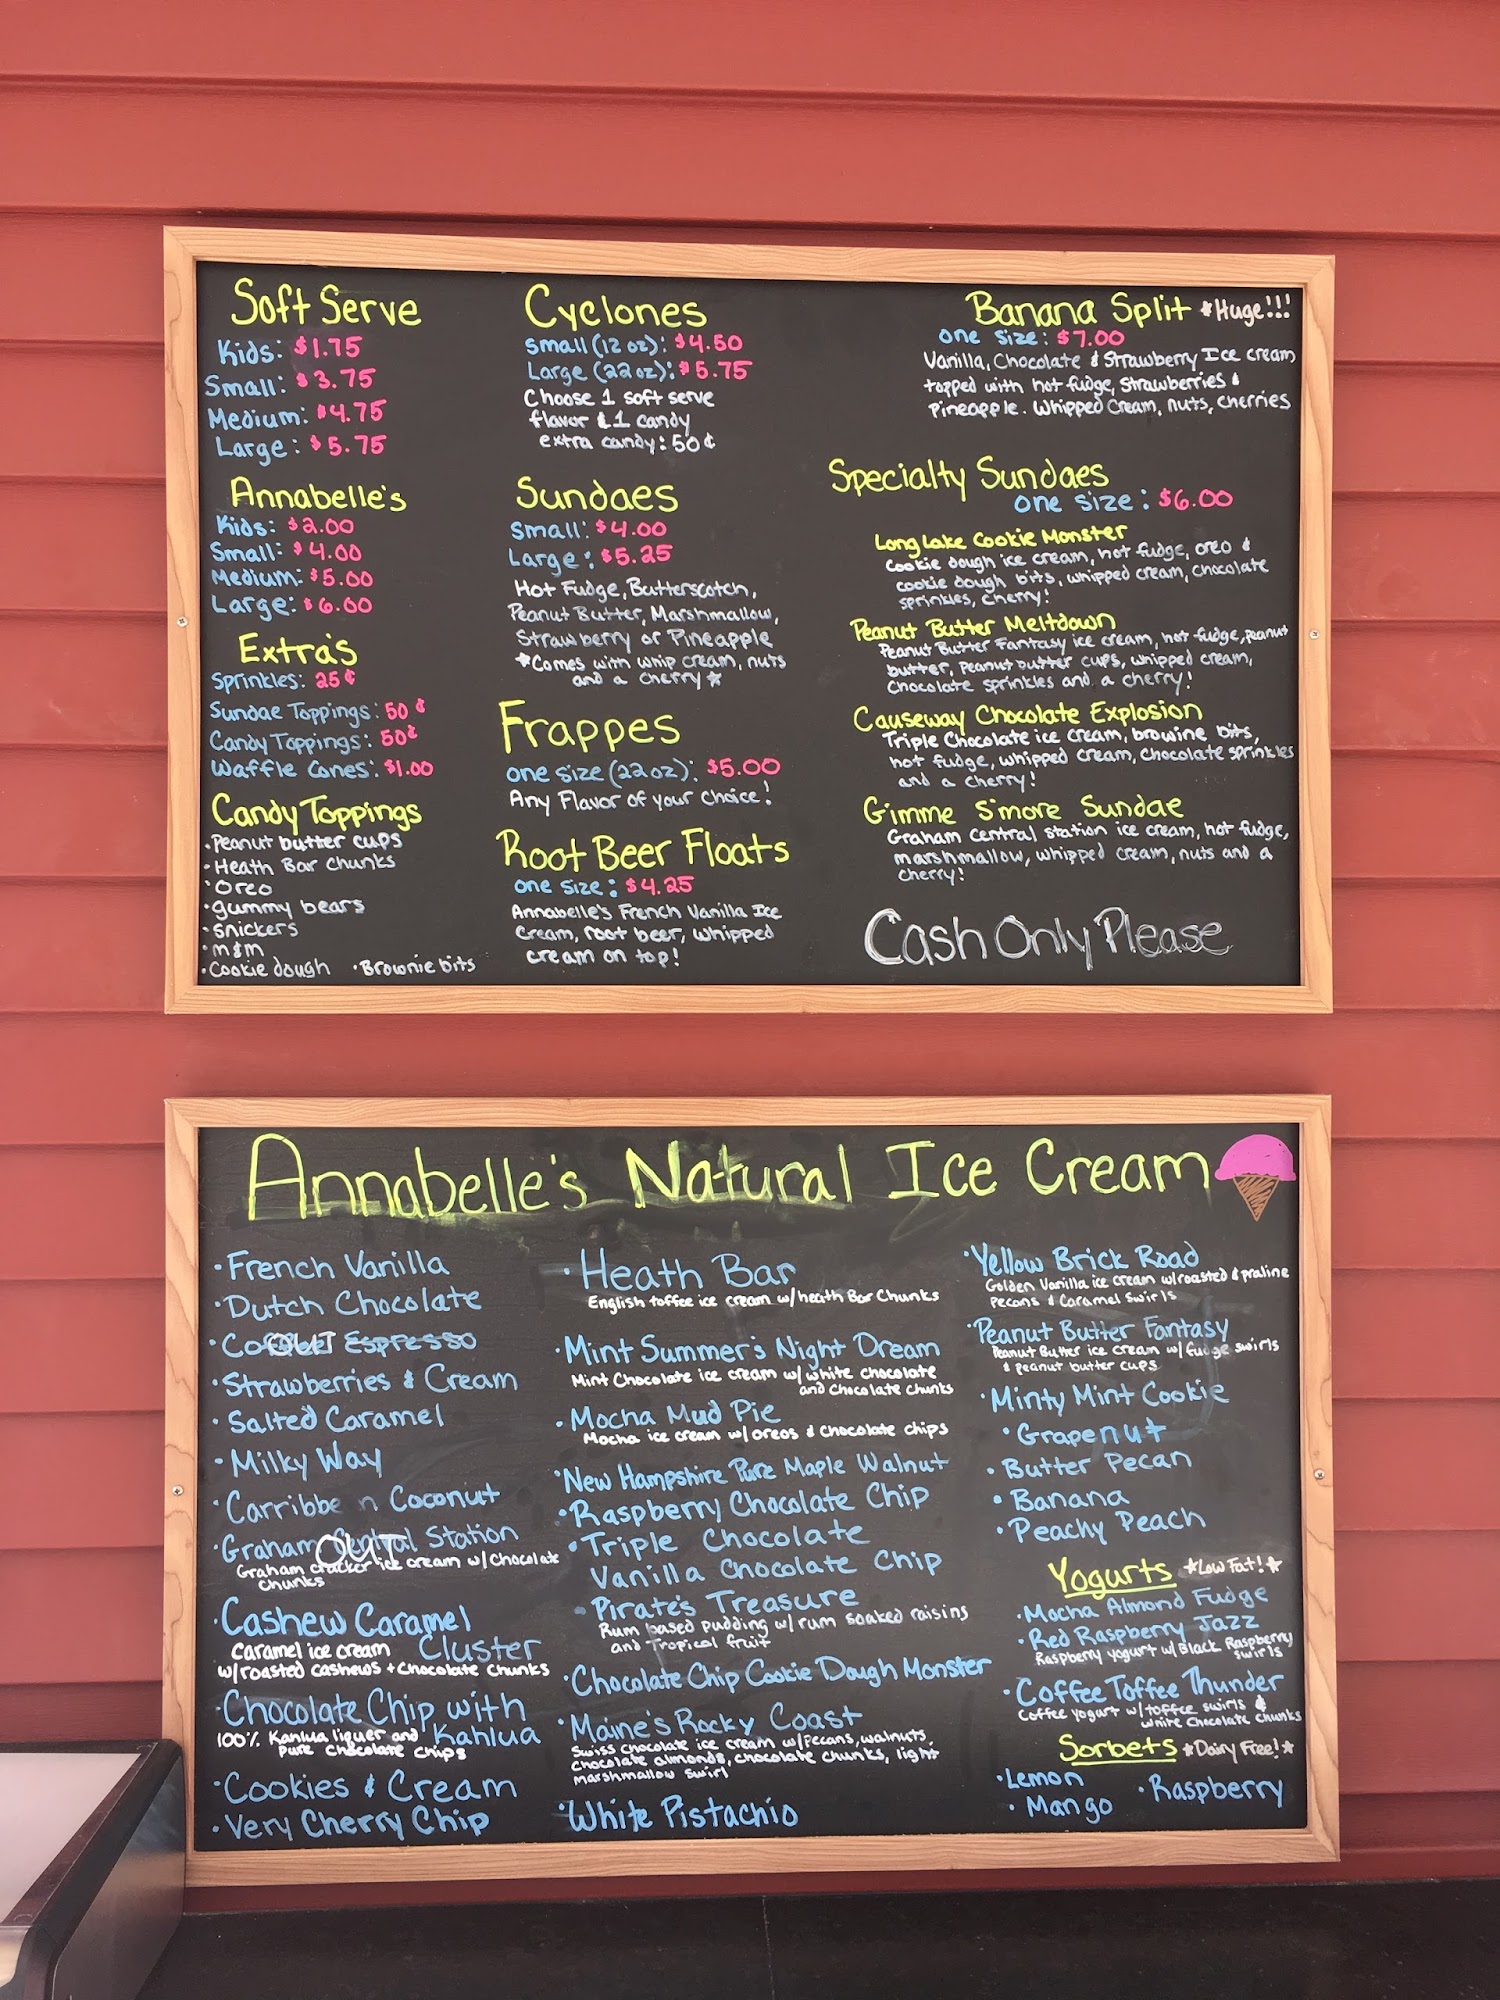 Soft Serve
Kids: $1.75
Small: $3.75
Medium: $4.75
Large: $5.75
Annabelle's
Kids: $2.00
Small: $4.00
Medium: $5.00
Large: $6.00
Extra's
Sprinkles: 25¢
Sundae Toppings: 50¢
Candy Toppings: 50¢
Waffle Cones: $1.00
Candy Toppings
•Peanut butter cups
•Heath Bar Chunks
•Oreo
•gummy bears
•snickers
•m&m
•Cookie dough •Brownie bits
Cyclones
Small (12 oz): $4.50
Large (22 oz): $5.75
Choose 1 soft serve
flavor & 1 candy
extra candy: 50¢
Sundaes
Small: $4.00
Large: $5.25
Hot Fudge, Butterscotch,
Peanut Butter, Marshmallow,
Strawberry or Pineapple
*Comes with whip cream, nuts
and a cherry*
Frappes
one size (22 oz): $5.00
Any Flavor of your choice!
Root Beer Floats
one size: $4.25
Annabelle's French Vanilla Ice
Cream, root beer, whipped
cream on top!
Banana Split *Huge!!!
one size: $7.00
Vanilla, Chocolate & Strawberry Ice cream
topped with hot fudge, strawberries &
pineapple. Whipped cream, nuts, cherries
Specialty Sundaes
one size: $6.00
Long Lake Cookie Monster
Cookie dough ice cream, hot fudge, oreo &
cookie dough bits, whipped cream, chocolate
sprinkles, cherry!
Peanut Butter Meltdown
Peanut Butter Fantasy ice cream, hot fudge, peanut
butter, peanut butter cups, whipped cream,
chocolate sprinkles and a cherry!
Causeway Chocolate Explosion
Triple Chocolate ice cream, browine bits,
hot fudge, whipped cream, chocolate sprinkles
and a cherry!
Gimme S'more Sundae
Graham Central Station ice cream, hot fudge,
marshmallow, whipped cream, nuts and a
cherry!
Cash Only Please
Annabelle's Natural Ice Cream
•French Vanilla
•Dutch Chocolate
•Coffee Espresso
OUT
•Strawberries & Cream
•Salted Caramel
•Milky Way
•Carribbe n Coconut
•Graham Central Station
OUT
Graham cracker ice cream w/ chocolate
chunks
•Cashew Caramel
Caramel ice cream Cluster
w/roasted cashews + chocolate chunks
•Chocolate Chip with
100% Kahlua liquer and Kahlua
pure chocolate chips
•Cookies & Cream
•Very Cherry Chip
•Heath Bar
English toffee ice cream w/ heath Bar Chunks
•Mint Summer's Night Dream
Mint Chocolate ice cream w/ white chocolate
and chocolate chunks
•Mocha Mud Pie
Mocha ice cream w/ oreos & chocolate chips
•New Hampshire Pure Maple Walnut
•Raspberry Chocolate Chip
•Triple Chocolate
Vanilla Chocolate Chip
•Pirate's Treasure
Rum based pudding w/ rum soaked raisins
and tropical fruit
•Chocolate Chip Cookie Dough Monster
•Maine's Rocky Coast
Swiss chocolate ice cream w/ pecans, walnuts,
chocolate almonds, chocolate chunks, light
marshmallow swirl
•White Pistachio
•Yellow Brick Road
Golden Vanilla ice cream w/roasted & praline
pecans & Caramel Swirls
•Peanut Butter Fantasy
Peanut Butter ice cream w/ fudge swirls
& peanut butter cups
•Minty Mint Cookie
•Grapenut
•Butter Pecan
•Banana
•Peachy Peach
Yogurts *Low Fat!*
•Mocha Almond Fudge
•Red Raspberry Jazz
Raspberry yogurt w/ Black Raspberry
swirls
•Coffee Toffee Thunder
Coffee yogurt w/ toffee swirls &
white chocolate chunks
Sorbets *Dairy Free!*
•Lemon
•Mango •Raspberry